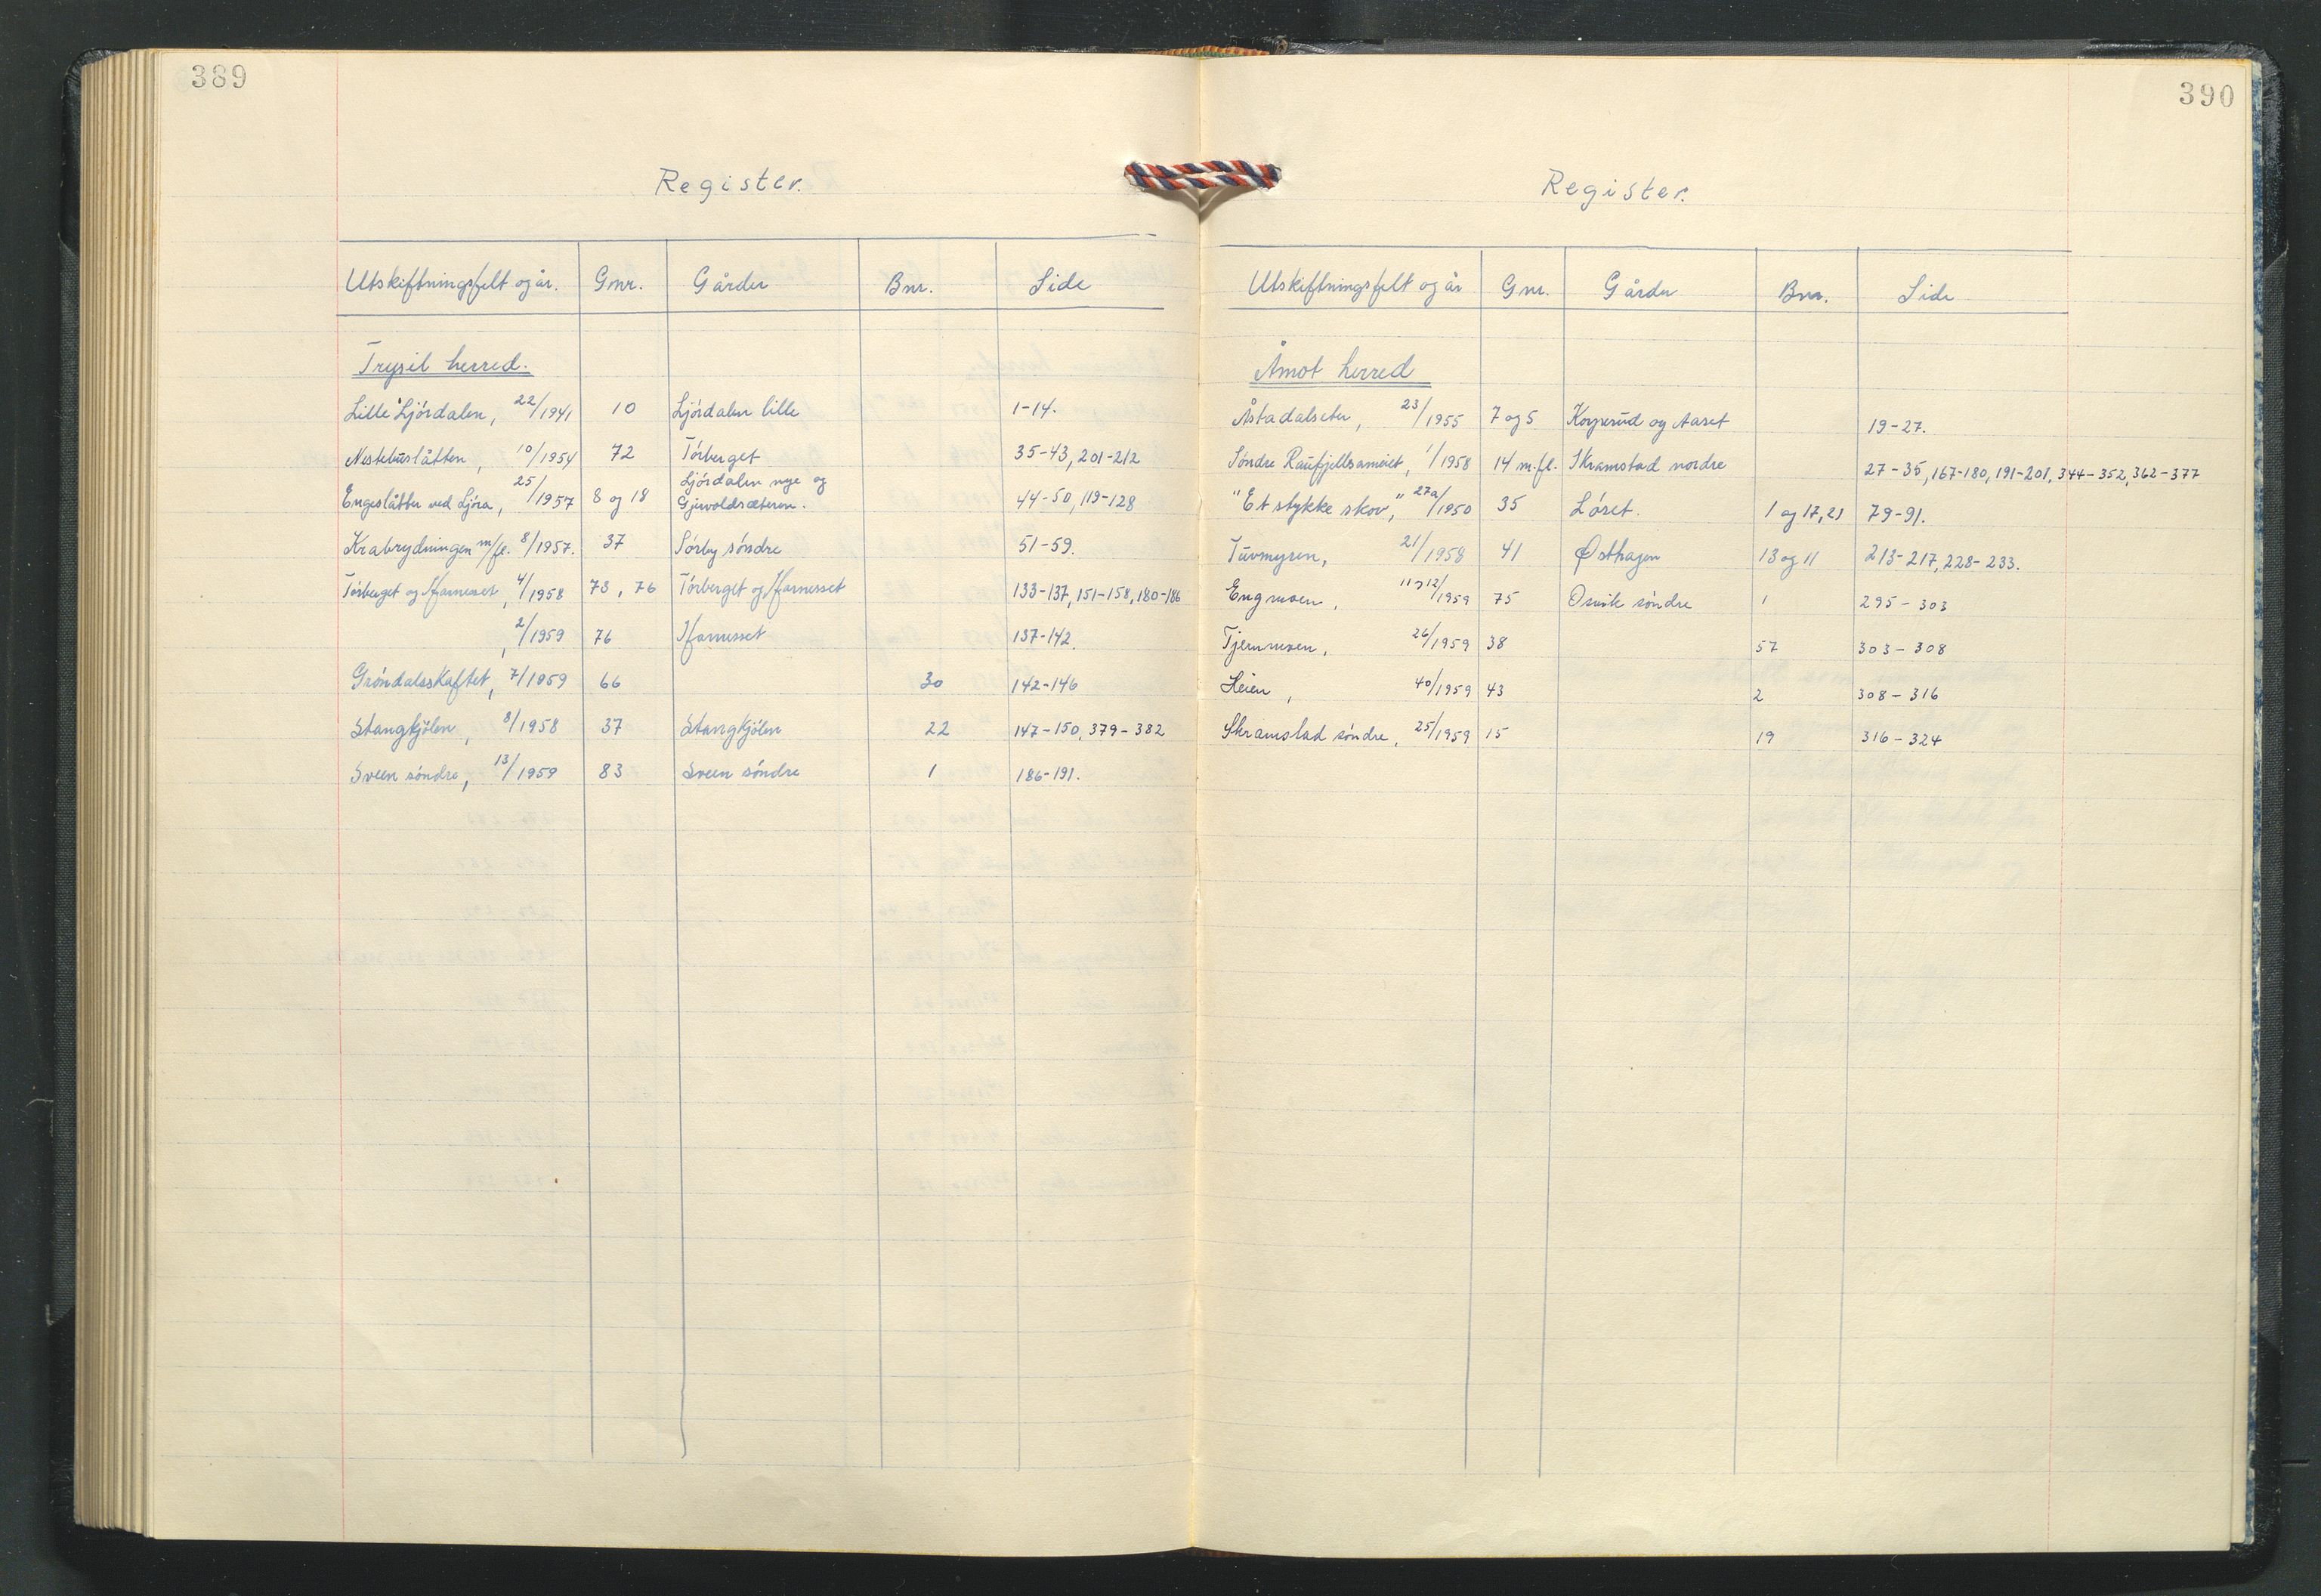 389
Register.
Utskiftningsfelt og år. Gnr. Gårder Bnr. Side
Trysil herred.
Lille Ljórdalen, 22/1941 10 Ljórdalen lille 1-14.
Nestebuslåtten, 10/1954 72 Tórberget 35-43, 201-212
Engeslåtter ved Ljóra, 25/1957 8 og 18 Ljórdalen nye og Gjevoldsæteren. 44-50, 119-128
Krabrydningen m/fl. 8/1957. 37 Sórby sóndre 51-59.
Tórberget og Ifarnesset, 4/1958 73, 76 Tórberget og Ifarnesset 133-137, 151-158, 180-186
, 2/1959 76 Ifarnesset 137-142.
Gróndalsskaftet, 7/1959 66 30 142-146
Stangkjólen, 8/1958 37 Stangkjólen 22 147-150, 379-382
Sveen sóndre, 13/1959 83 Sveen sóndre 1 186-191.
390
Register.
Utskiftningsfelt og år Gnr. Gårder Bnr. Side
Åmot herred
Åstadalseter, 23/1955 7 og 5 Korperud og Aaset 19-27.
Sóndre Raufjellsameiet, 1/1958 14 m.fl. Skramstad nordre 27-35, 167-180, 191-201, 344-352, 362-377
"Et stykke skov", 27a/1950 35 Lóset. 1 og 17, 21 79-91.
Tuvmyren, 21/1958 41 Østhagen 13 og 11 213-217, 228-233.
Engmoen, 11 12/1959 75 Osvik sóndre 1 295-303
Tjernmoen, 26/1959 38 57 303-308
Heien, 40/1959 43 2 308-316
Skramstad sóndre, 25/1959 15 19 316-324